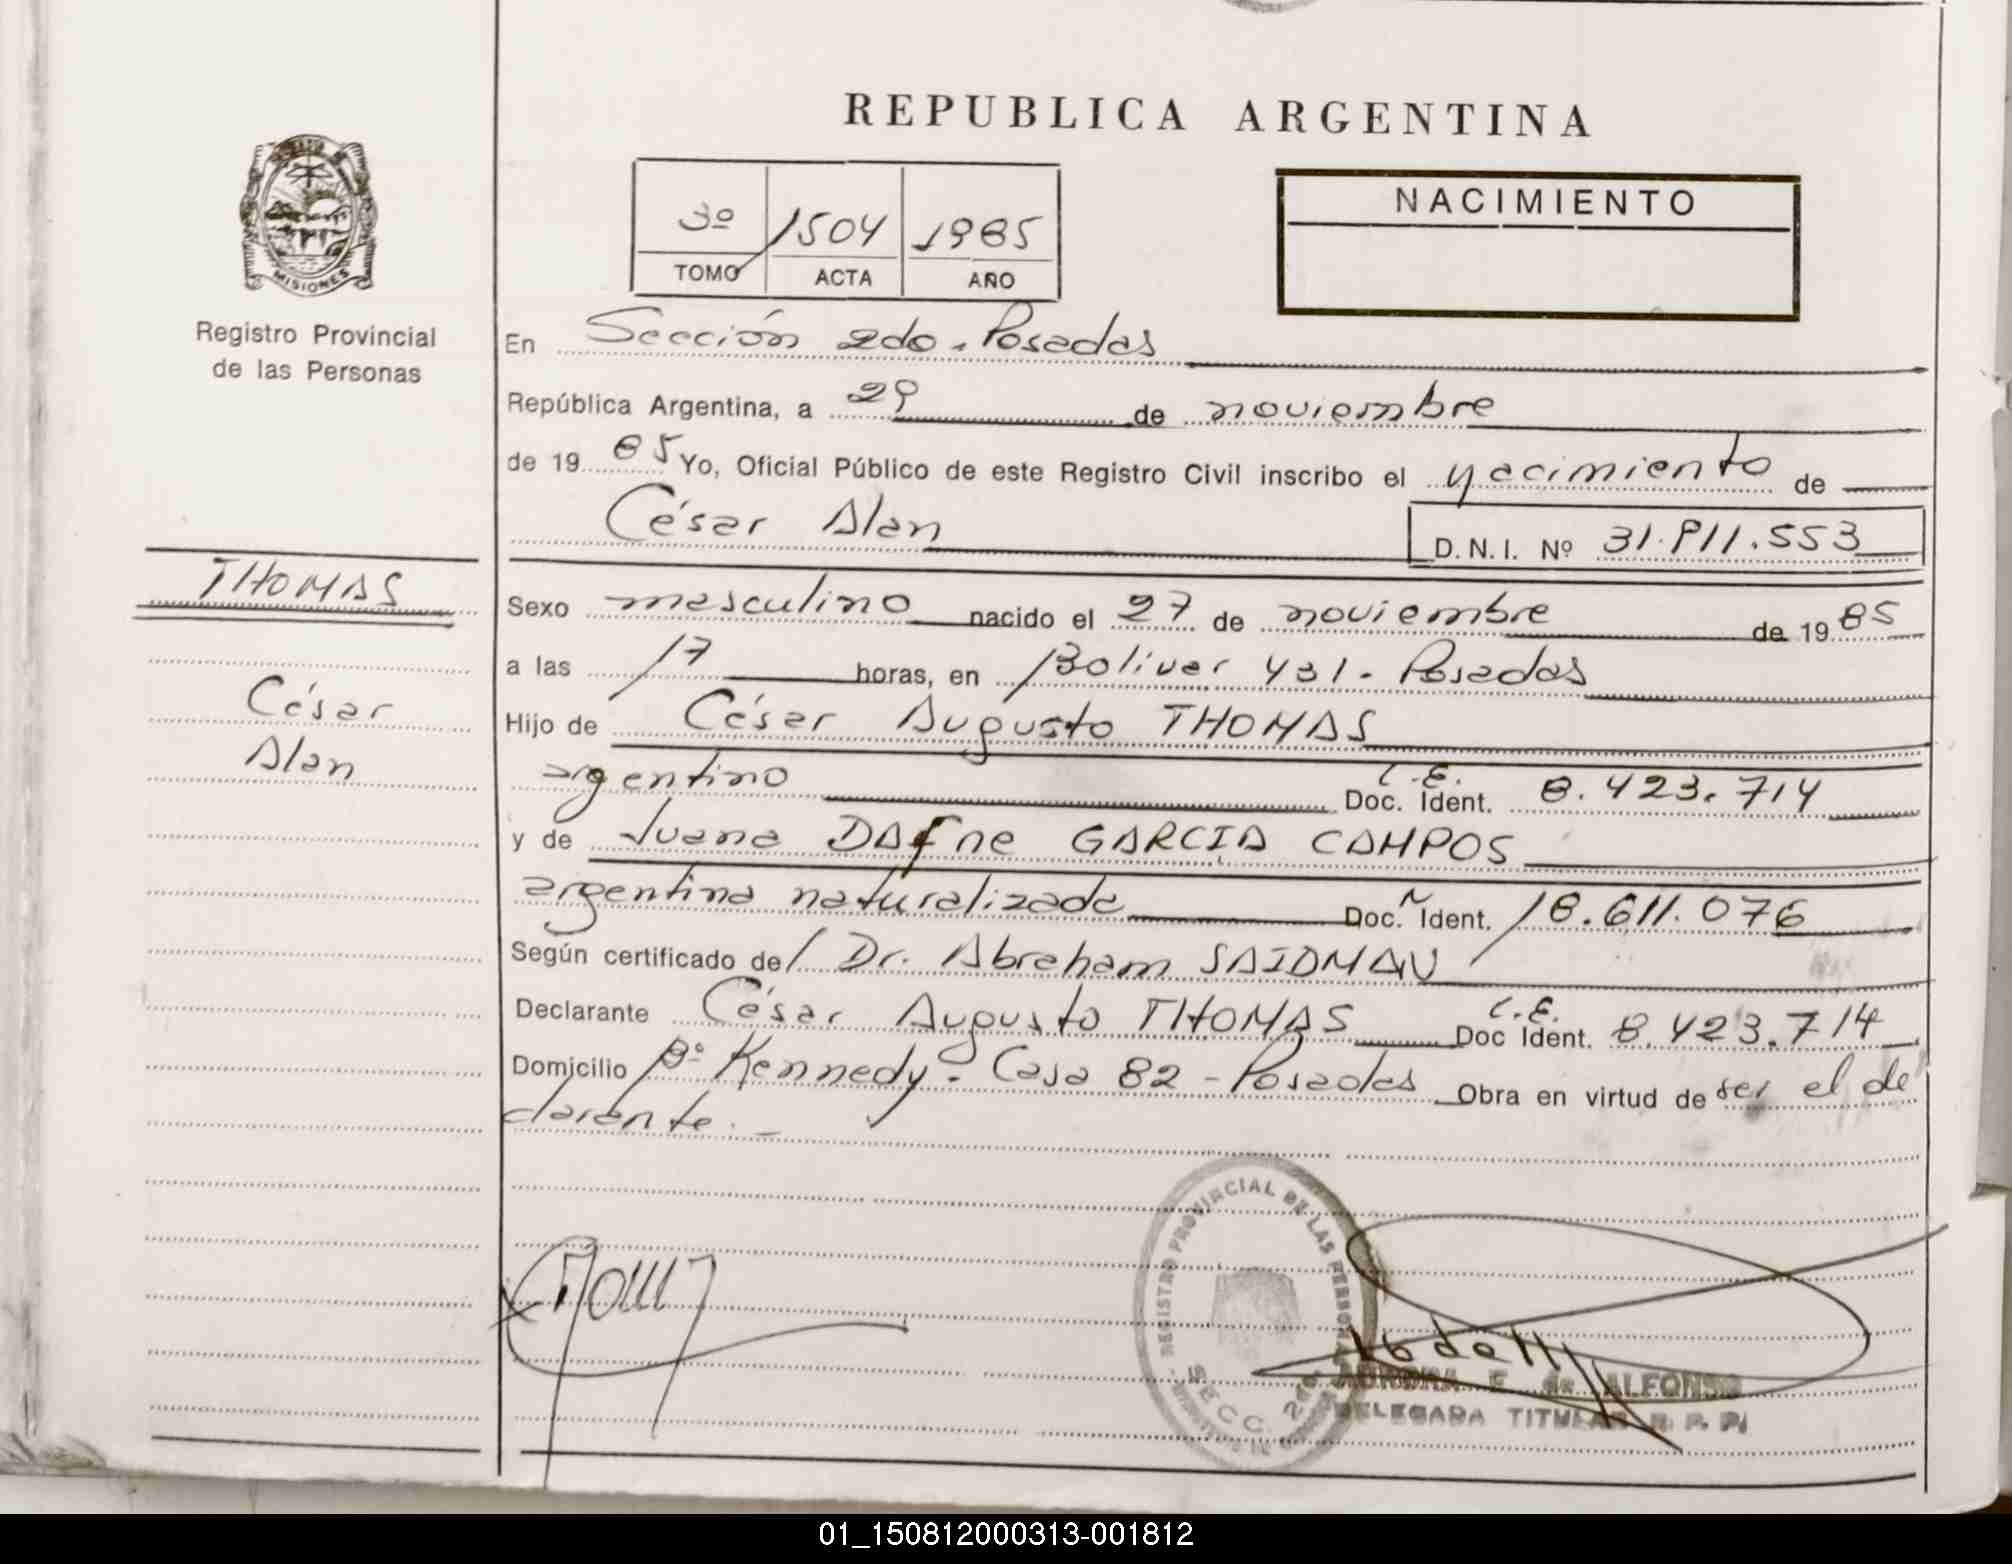 REPUBLICA ARGENTINA
MISIONES
Registro Provincial
de las Personas
3º 1504 1985
TOMO ACTA AÑO
NACIMIENTO
En Sección 2do. Posadas
República Argentina, a 29 de noviembre
de 19 85 Yo, Oficial Público de este Registro Civil inscribo el nacimiento de
César Alan D.N.I. Nº 31.911.553
THOMAS
César
Alan
Sexo masculino nacido el 27 de noviembre de 19 85
a las 17 horas, en Bolivar 431. Posadas
Hijo de César Augusto THOMAS
argentino L.E. Doc. Ident. 8.423.714
y de Juana DAFne GARCIA CAMPOS
argentina naturalizada Doc. Ident. 18.611.076
Según certificado de Dr. Abraham SAIDMAN
Declarante César Augusto THOMAS L.E. Doc Ident. 8.423.714
Domicilio Bº Kennedy. Casa 82 - Posadas Obra en virtud de ser el de
clarante. -
REGISTRO PROVINCIAL DE LAS PERSONAS
SECC. 2da.
AURORA E. de ALFONSO
DELEGADA TITULAR R. P. P.
01_150812000313-001812